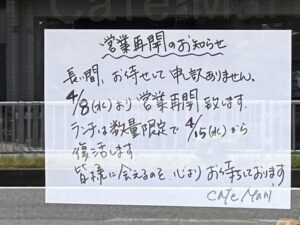 営業再開のお知らせ
長い間、お待せして申訳ありません。
4/8(水)より営業再開致します。
ランチは数量限定で4/15(水)から
復活します。
皆様に会えるのを心よりお待ちしております
cafe MANI